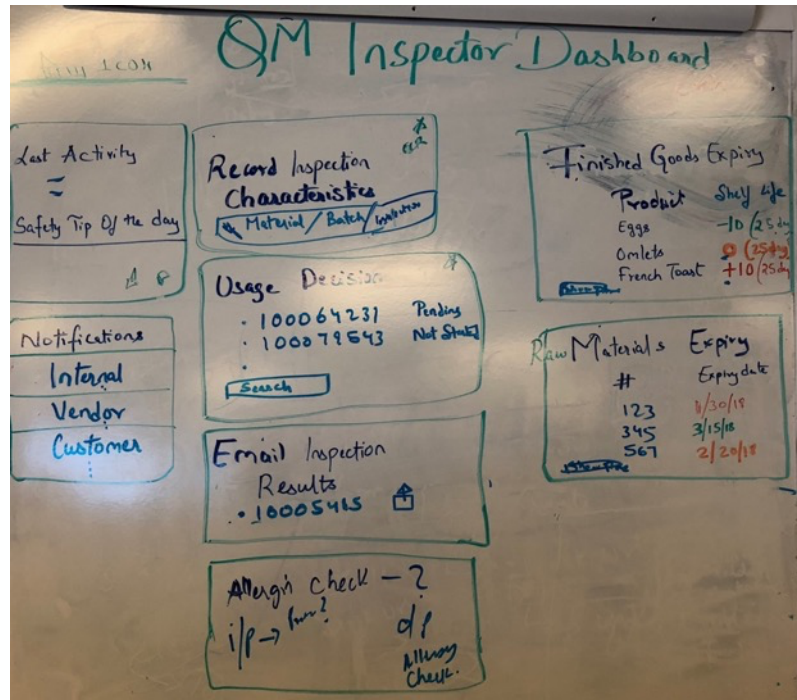 QM Inspector Dashboard
ICON
Last Activity
Safety Tip Of the day
Notifications
Internal
Vendor
Customer
Record Inspection
Characteristics
Material / Batch /
Usage Decision
100064231 Pending
100079543 Not Started
Search
Email Inspection
Results
10005415
Allergn Check - ?
i/p →
o/p
Allergy
Check.
Finished Goods Expiry
Product Shelf Life
Eggs -10 (25 day
Omlets 0 (25 day)
French Toast +10 (25 day
Raw Materials Expiry
# Expiry date
123 1/30/18
345 3/15/18
567 2/20/18